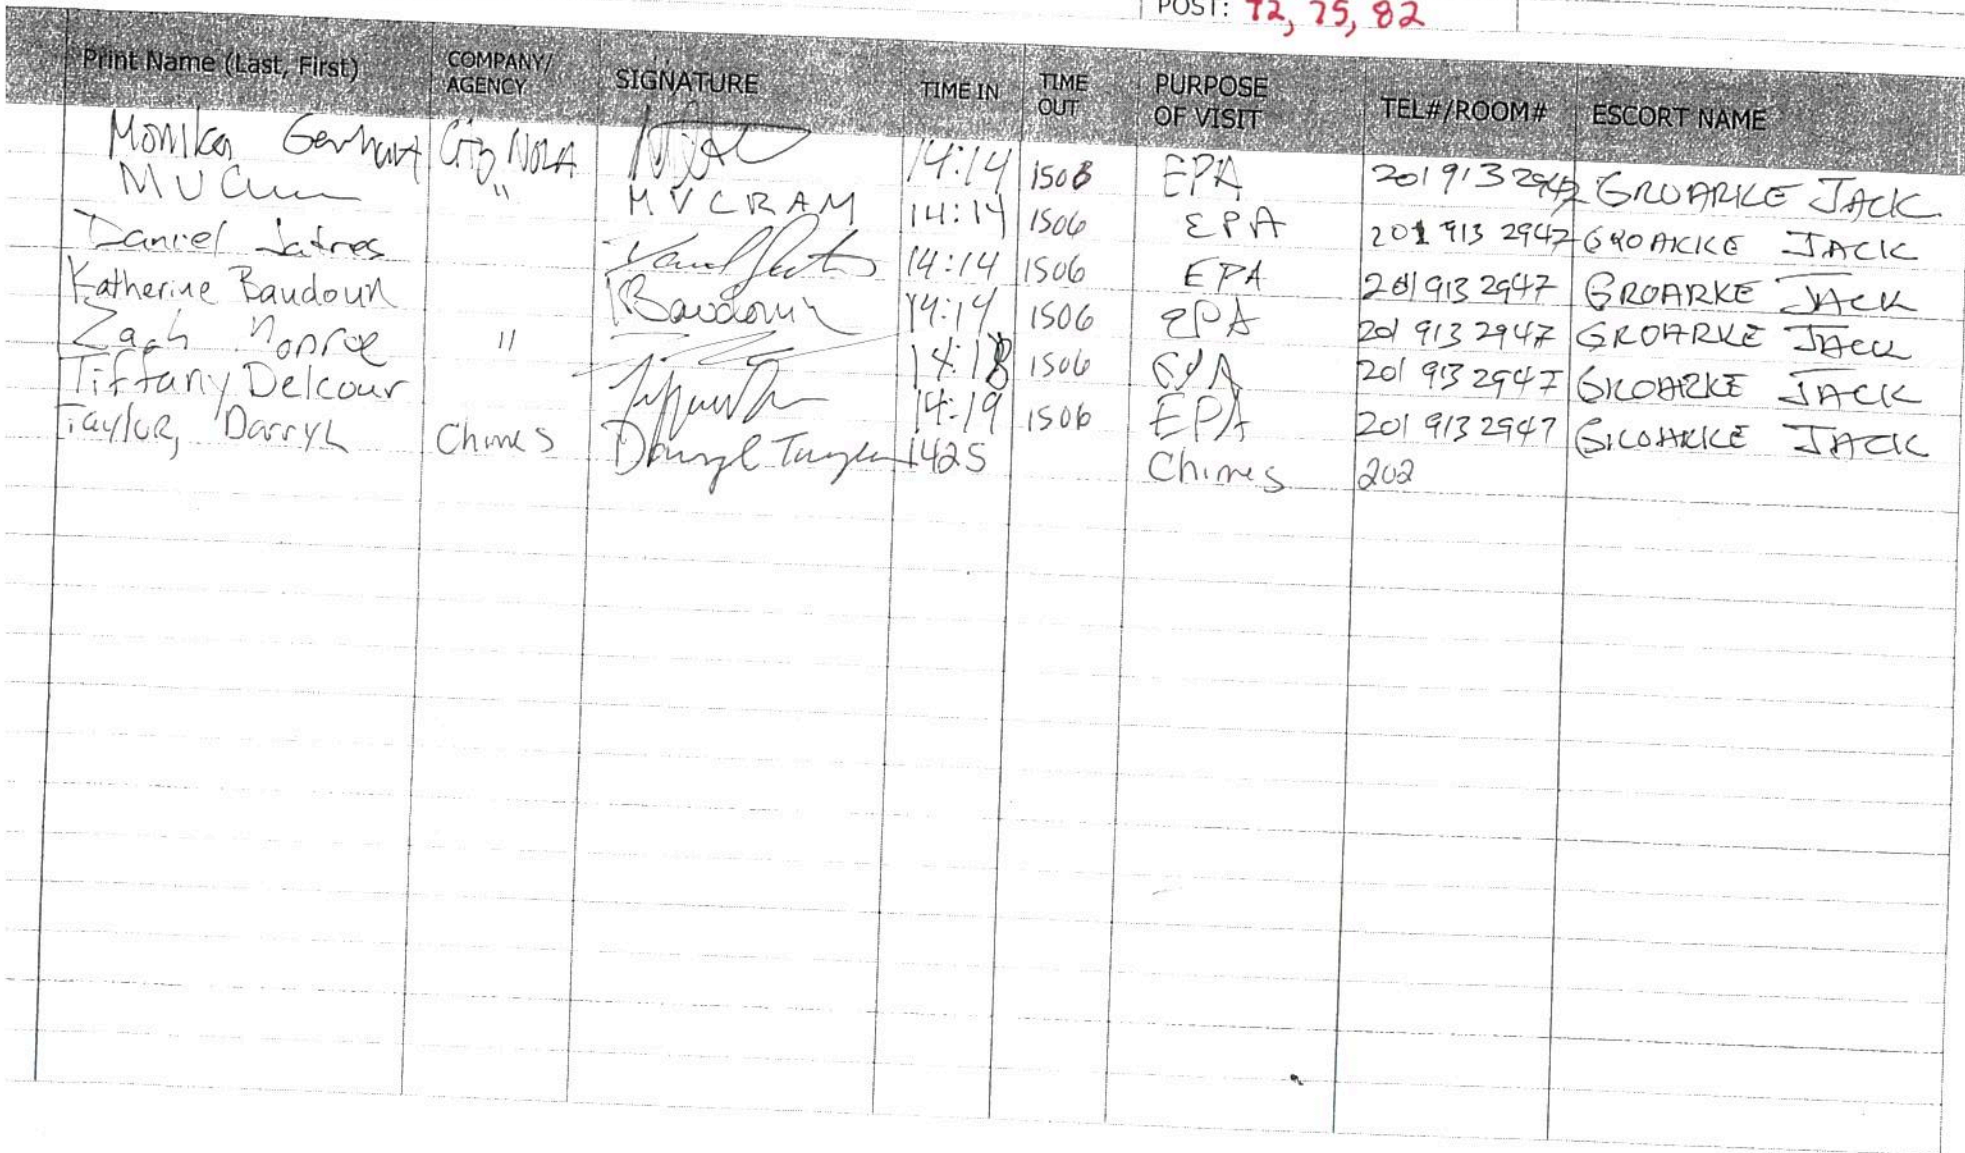 POST: 72, 75, 82
Print Name (Last, First) COMPANY/ AGENCY SIGNATURE TIME IN TIME OUT PURPOSE OF VISIT TEL#/ROOM# ESCORT NAME
Monika Gerhart City NOLA 14:14 1506 EPA 201 913 2947 GROARKE JACK
" MVCRAM 14:14 1506 EPA 201 913 2947 GROARKE JACK
Daniel Jatres 14:14 1506 EPA 201 913 2947 GROARKE JACK
Katherine Baudouin KBaudouin 14:14 1506 EPA 201 913 2947 GROARKE JACK
Zach Monroe " 14:18 1506 EPA 201 913 2947 GROARKE JACK
Tiffany Delcour 14:19 1506 EPA 201 913 2947 GROARKE JACK
Taylor, Darryl Chimes Darryl Taylor 1425 Chimes 202